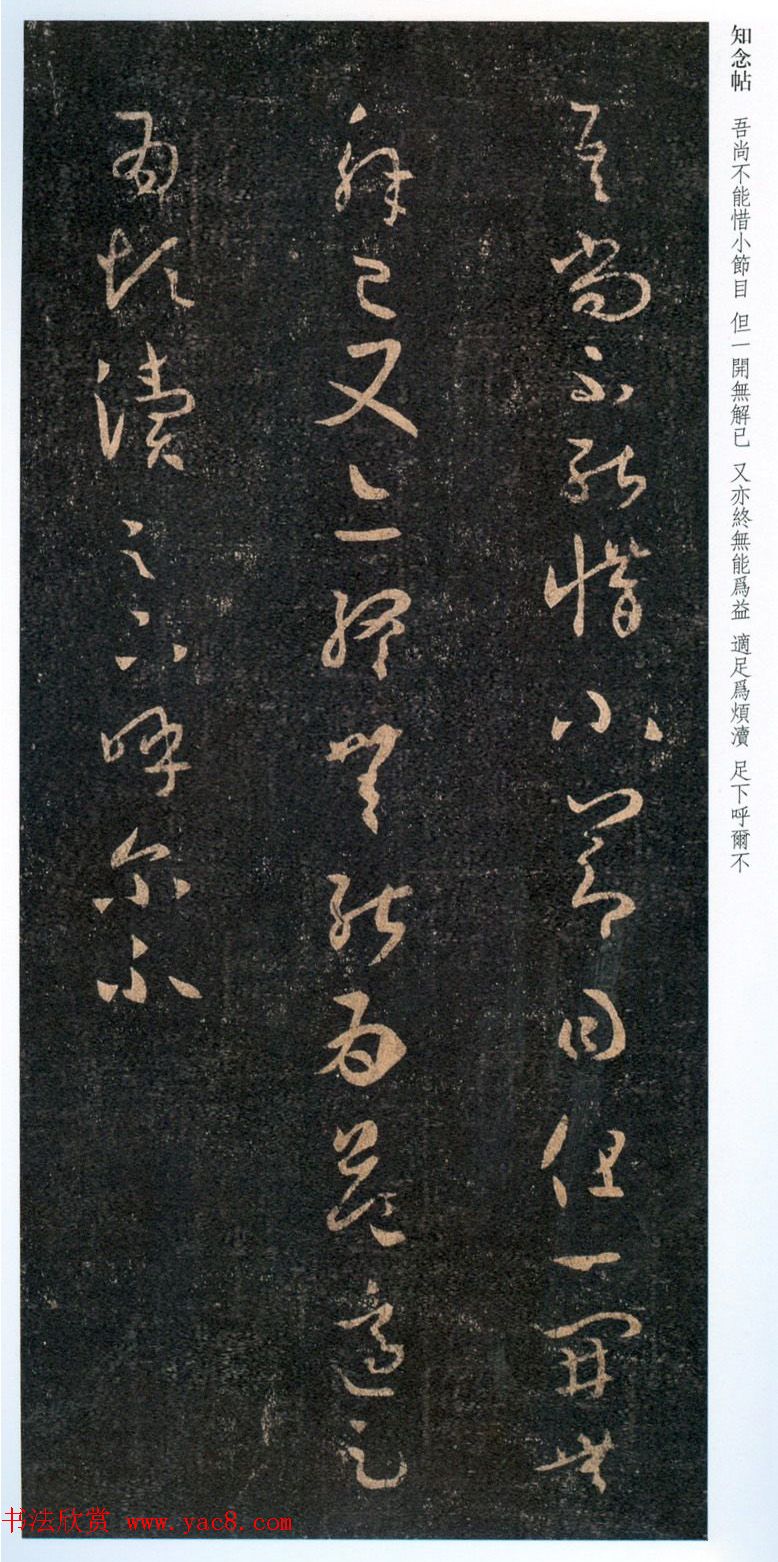 知念帖 吾尚不能惜小節目 但一開無解已 又亦終無能爲益 適足爲煩瀆 足下呼爾不
吾尚不能惜小節目但一開無
解已又亦終無能為益適足
為煩瀆足下呼尔不
书法欣赏 www.yac8.com